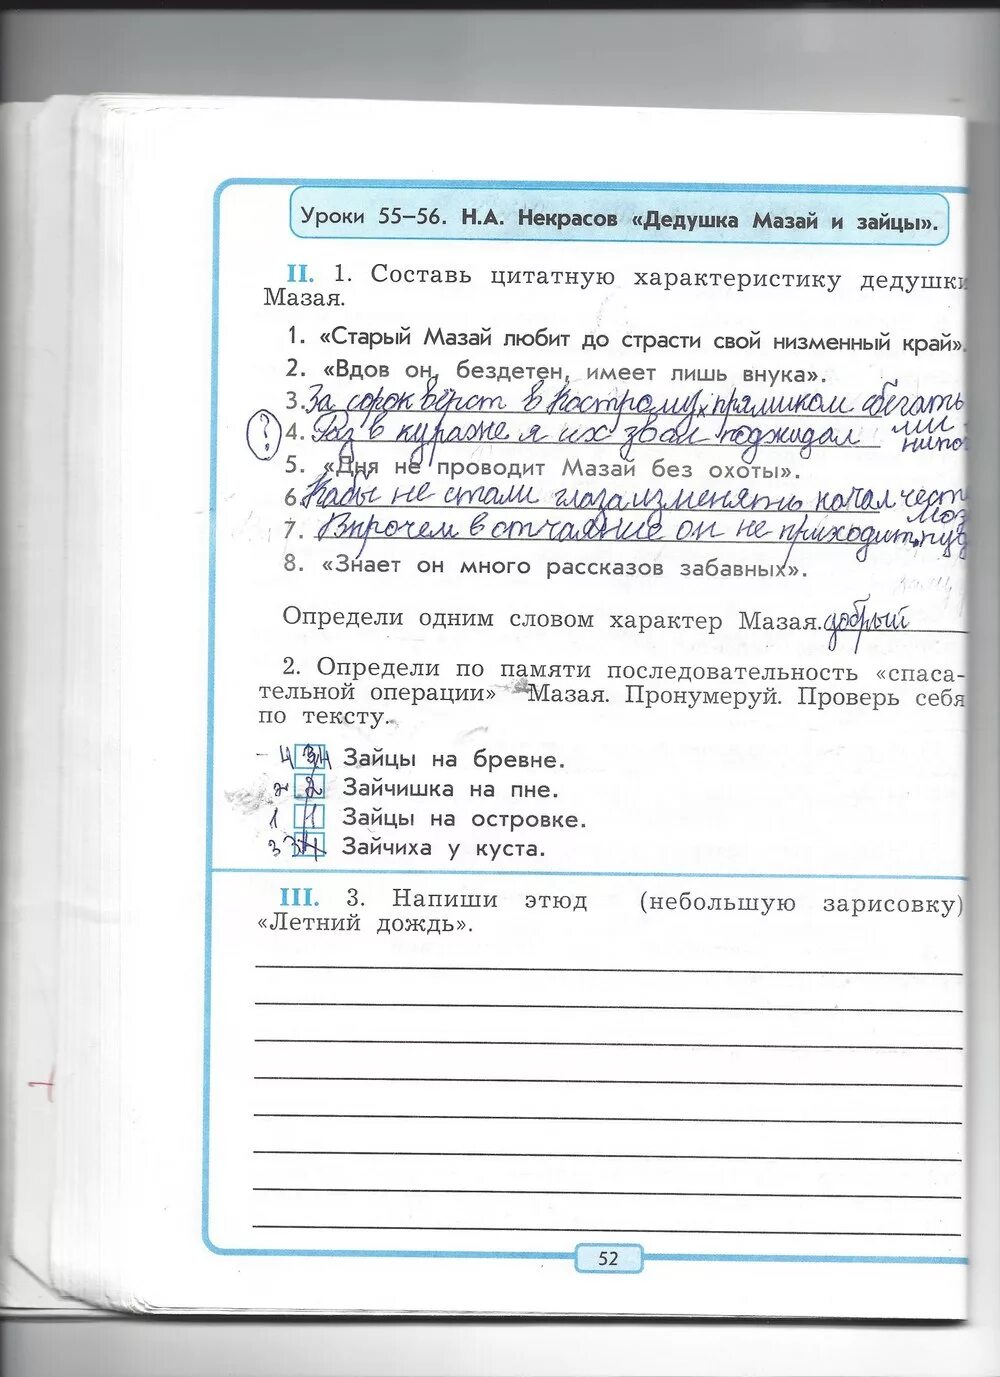 Уроки 55–56. Н.А. Некрасов «Дедушка Мазай и зайцы».
II. 1. Составь цитатную характеристику дедушки
Мазая.
1. «Старый Мазай любит до страсти свой низменный край».
2. «Вдов он, бездетен, имеет лишь внука».
3. За сорок вёрст в Кострому прямиком сбегать
? 4. Раз в кураже я их звал поджидал
5. «Дня не проводит Мазай без охоты».
6. Кабы не стали глаза изменять начал част
7. Впрочем в отчаяние он не приходит,
8. «Знает он много рассказов забавных».
Определи одним словом характер Мазая. добрый
2. Определи по памяти последовательность «спаса-
тельной операции» Мазая. Пронумеруй. Проверь себя
по тексту.
4 Зайцы на бревне.
2 2 Зайчишка на пне.
1 1 Зайцы на островке.
3 3 Зайчиха у куста.
III. 3. Напиши этюд (небольшую зарисовку)
«Летний дождь».
52